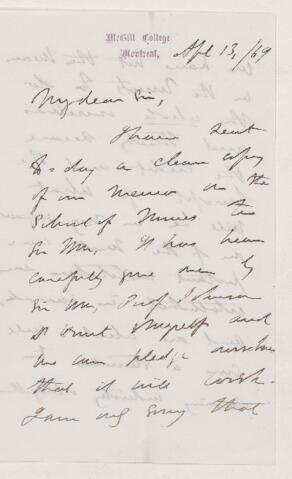 McGill College,
Montreal,
Apl 13, /69
My dear Sir,
I have sent
to-day a clean copy
of our memoir on the
School of Mines to
Sir Wm. It has been
carefully gone over by
Sir Wm, Prof Johnson
Dr Hunt & myself and
we can pledge ourselves
that it will work.
I am only sorry that